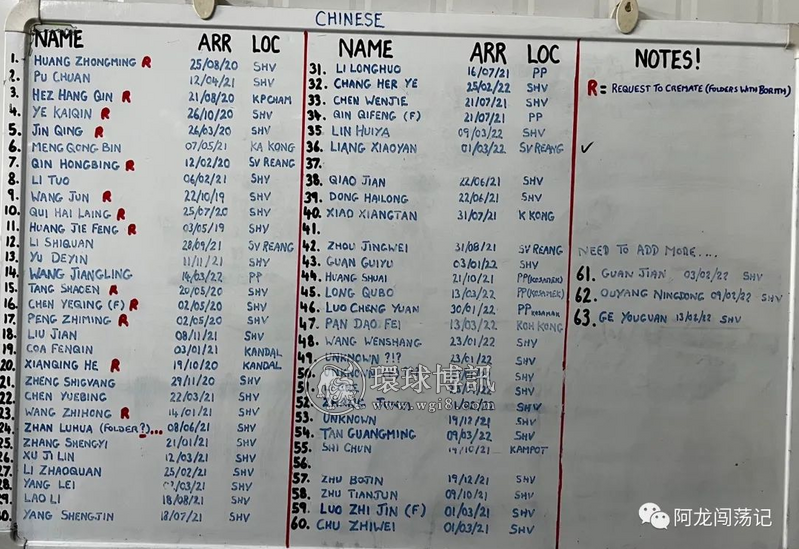 CHINESE
NAME ARR LOC
1. HUANG ZHONGMING R 25/08/20 SHV
2. PU CHUAN 12/04/21 SHV
3. HEZ HANG QIN R 21/08/20 KPCHAM
4. YE KAIQIN R 26/10/20 SHV
5. JIN QING R 26/03/20 SHV
6. MENG QONG BIN 07/05/21 KA KONG
7. QIN HONGBING R 12/02/20 SV REANG
8. LI TUO 06/02/21 SHV
9. WANG JUN R 22/10/19 SHV
10. QUI HAI LAING R 25/07/20 SHV
11. HUANG JIE FENG R 03/05/19 SHV
12. LI SHIQUAN 28/09/21 SV REANG
13. YU DEYIN 11/11/21 SHV
14. WANG JIANGLING 14/03/22 PP
15. TANG SHACEN R 20/05/20 SHV
16. CHEN YEQING (F) R 02/05/20 SHV
17. PENG ZHIMING R 02/05/20 SHV
18. LIU JIAN 08/11/21 SHV
19. COA FENQIN 03/01/21 KANDAL
20. XIANQING HE R 19/10/20 KANDAL
21. ZHENG SHIGVANG 29/11/20 SHV
22. CHEN YUEBING 22/03/21 SHV
23. WANG ZHIHONG R 14/01/21 SHV
24. ZHAN LUHUA (FOLDER?)... 08/06/21 SHV
25. ZHANG SHENGYI 21/01/21 SHV
26. XU JI LIN 12/03/21 SHV
27. LI ZHAOQUAN 25/02/21 SHV
28. YANG LEI /03/21 SHV
29. LAO LI 18/08/21 SHV
30. YANG SHENGJIN 18/07/21 SHV
NAME ARR LOC
31. LI LONGHUO 16/07/21 PP
32. CHANG HER YE 25/02/22 SHV
33. CHEN WENJIE 21/07/21 SHV
34. QIN QIFENG (F) 21/07/21 PP
35. LIN HUIYA 09/03/22 SHV
36. LIANG XIAOYAN 01/03/22 SV REANG ✓
37.
38. QIAO JIAN 22/06/21 SHV
39. DONG HAILONG 22/06/21 SHV
40. XIAO XIANGTAN 31/07/21 K KONG
41.
42. ZHOU JINGWEI 31/08/21 SV REANG
43. GUAN GUIYU 03/01/22 SHV
44. HUANG SHUAI 21/10/21 PP(KOSAMEK)
45. LONG QUBO 13/03/22 PP(KOSAMEK)
46. LUO CHENG YUAN 30/01/22 PP KOSAMAK
47. PAN DAO FEI 13/03/22 KOH KONG
48. WANG WENSHANG 23/01/22 SHV
49. UNKNOWN ?!? 23/01/22 SHV
50. SHV
SHV
52. SHV
53. UNKNOWN 19/12/21 SHV
54. TAN GUANGMING 09/03/22 SHV
55. SHI CHUN 19/10/21 KAMPOT
56.
57. ZHU BOJIN 19/12/21 SHV
58. ZHU TIANJUN 09/10/21 SHV
59. LUO ZHI JIN (F) 01/03/21 SHV
60. CHU ZHIWEI 01/03/21 SHV
NOTES!
R = REQUEST TO CREMATE (FOLDERS WITH BORITH)
NEED TO ADD MORE....
61. GUAN JIAN 03/02/22 SHV
62. OUYANG NINGDONG 09/02/22 SHV
63. GE YOUGUAN 13/02/22 SHV
環球博訊
www.wgi8.com
阿龙闯荡记